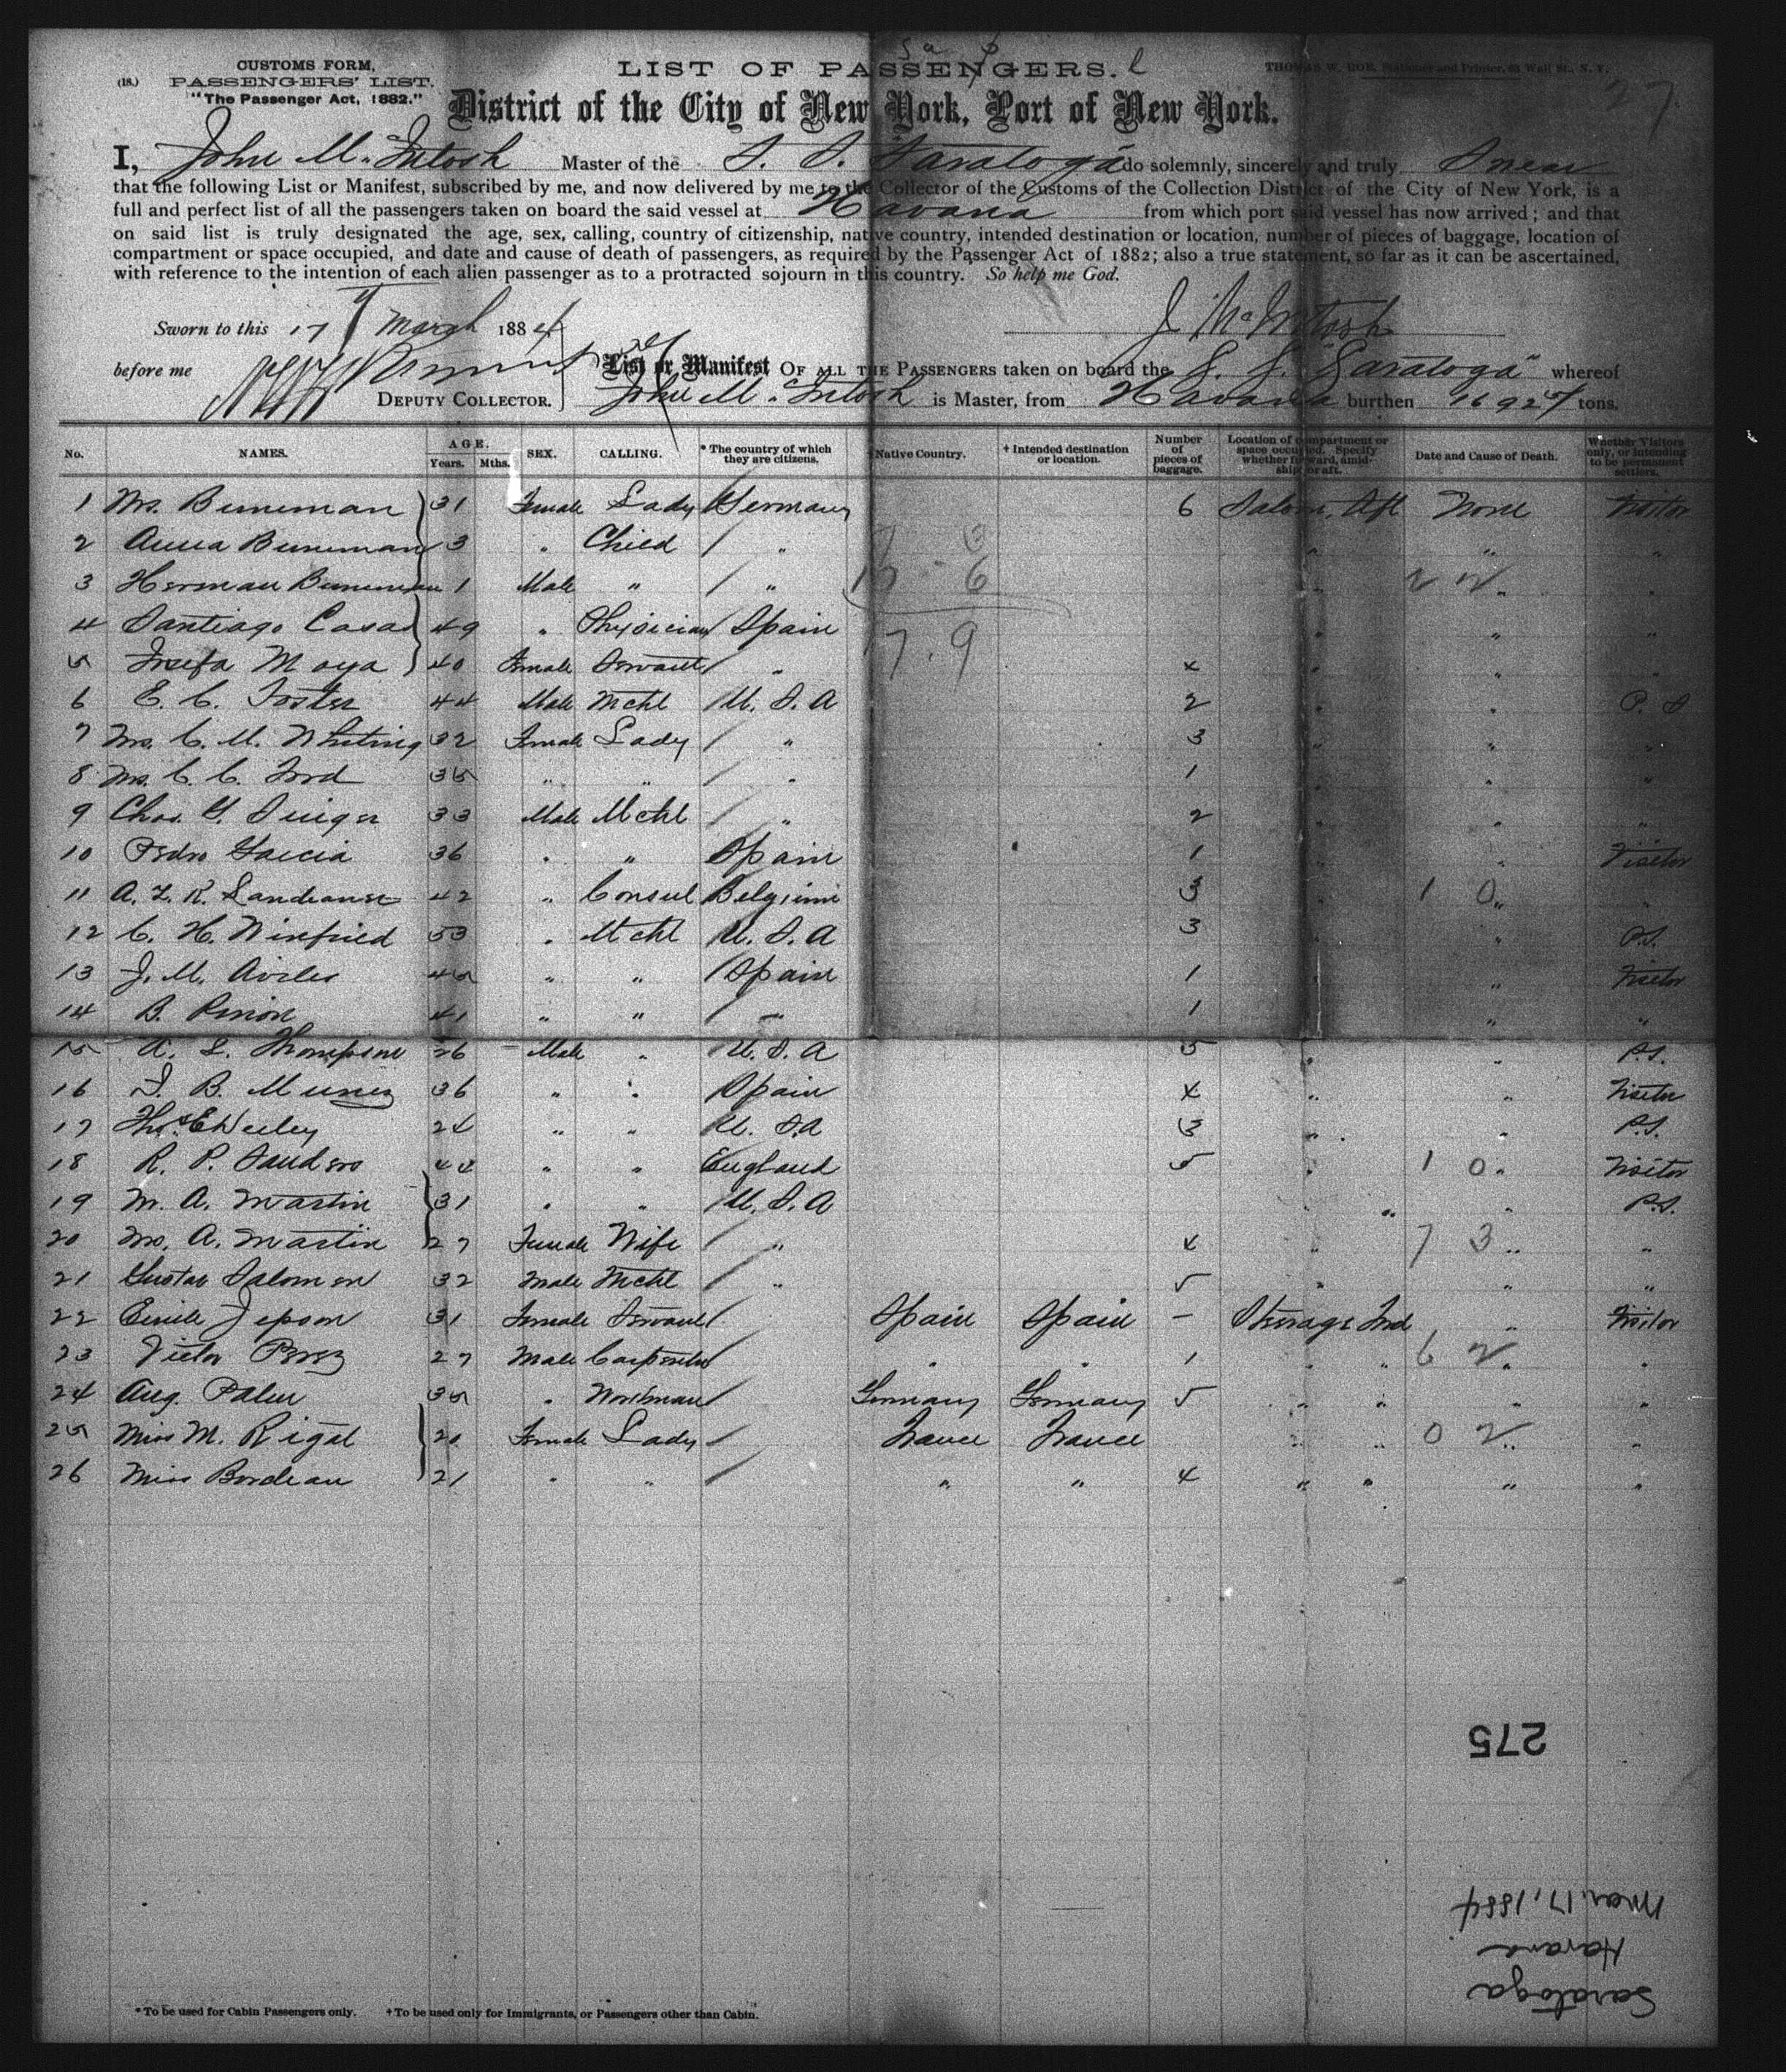 CUSTOMS FORM,
(18.) PASSENGERS' LIST.
"The Passenger Act, 1882."
LIST OF PASSENGERS.
THOMAS W. ROE, Stationer and Printer, 63 Wall St., N. Y.
27.
District of the City of New York, Port of New York.
I, John McIntosh Master of the S. S. "Saratoga" do solemnly, sincerely and truly Swear
that the following List or Manifest, subscribed by me, and now delivered by me to the Collector of the Customs of the Collection District of the City of New York, is a
full and perfect list of all the passengers taken on board the said vessel at Havana from which port said vessel has now arrived; and that
on said list is truly designated the age, sex, calling, country of citizenship, native country, intended destination or location, number of pieces of baggage, location of
compartment or space occupied, and date and cause of death of passengers, as required by the Passenger Act of 1882; also a true statement, so far as it can be ascertained,
with reference to the intention of each alien passenger as to a protracted sojourn in this country. So help me God.
Sworn to this 17 March 1884
J McIntosh
before me
DEPUTY COLLECTOR.
List or Manifest OF ALL THE PASSENGERS taken on board the S. S. "Saratoga" whereof
John McIntosh is Master, from Havana burthen tons.
No. NAMES. AGE. Years. Mths. SEX. CALLING. * The country of which they are citizens. Native Country. † Intended destination or location. Number of pieces of baggage. Location of compartment or space occupied. Specify whether forward, amidships or aft. Date and Cause of Death. Whether Visitors only, or intending to be permanent settlers.
1 Mrs. Buneman 31 Female Lady Germany 6 Saloon, Aft None Visitor
2 Anna Buneman 3 " Child " " " "
3 Herman Buneman 1 Male " " " " "
4 Santiago Casas 49 " Physician Spain " " "
5 Josefa Moya 40 Female Servant " 4 " " "
6 E. C. Foster 44 Male Mcht U. S. A 2 " " P. S
7 Mrs. C. M. Whiting 32 Female Lady " 3 " " "
8 Mrs. C. C. Ford 35 " " " 1 " " "
9 Chas. G. Singer 33 Male Mcht " 2 " " "
10 Pedro Garcia 36 " " Spain 1 " " Visitor
11 A. L. R. 42 " Consul Belgium 3 " " "
12 C. H. Winfried 53 " Mcht U. S. A 3 " " P.S.
13 J. M. Aviles 45 " " Spain 1 " " Visitor
14 B. 41 " " " 1 " " "
15 A. L. Thompson 26 Male " U. S. A 5 " " P.S.
16 B. Munez 36 " " Spain 4 " " Visitor
17 Thos. E 24 " " U. S.A 3 " " P.S.
18 R. P. Sanders 44 " " England 5 " " Visitor
19 M. A. Martin 31 " " U. S. A " " " P.S.
20 Mrs. A. Martin 27 Female Wife " 4 " " "
21 Gustav Salomon 32 Male Mcht " 5 " " "
22 Jepson 31 Female Servant Spain Spain – Steerage Fwd " Visitor
23 Victor Perez 27 Male Carpenter " " 1 " " " "
24 Aug. 35 " Workman Germany Germany 5 " " " "
25 Miss M. Rigal 20 Female Lady France France " " " "
26 Miss Bordeau 21 " " " " 4 " " " "
275
Saratoga
Havana
Mar. 17, 1884
* To be used for Cabin Passengers only. † To be used only for Immigrants, or Passengers other than Cabin.